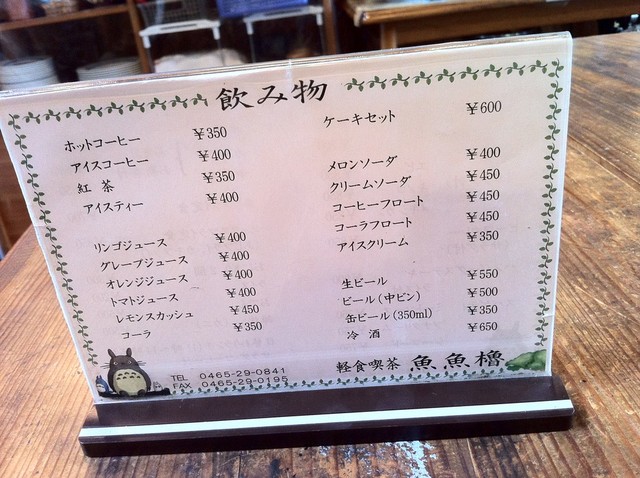 飲み物
ホットコーヒー ¥350
アイスコーヒー ¥400
紅茶 ¥350
アイスティー ¥400
リンゴジュース ¥400
グレープジュース ¥400
オレンジジュース ¥400
トマトジュース ¥400
レモンスカッシュ ¥450
コーラ ¥350
ケーキセット ¥600
メロンソーダ ¥400
クリームソーダ ¥450
コーヒーフロート ¥450
コーラフロート ¥450
アイスクリーム ¥350
生ビール ¥550
ビール(中ビン) ¥500
缶ビール(350ml) ¥350
冷酒 ¥650
TEL 0465-29-0841
FAX 0465-29-0195
軽食喫茶 魚魚櫓